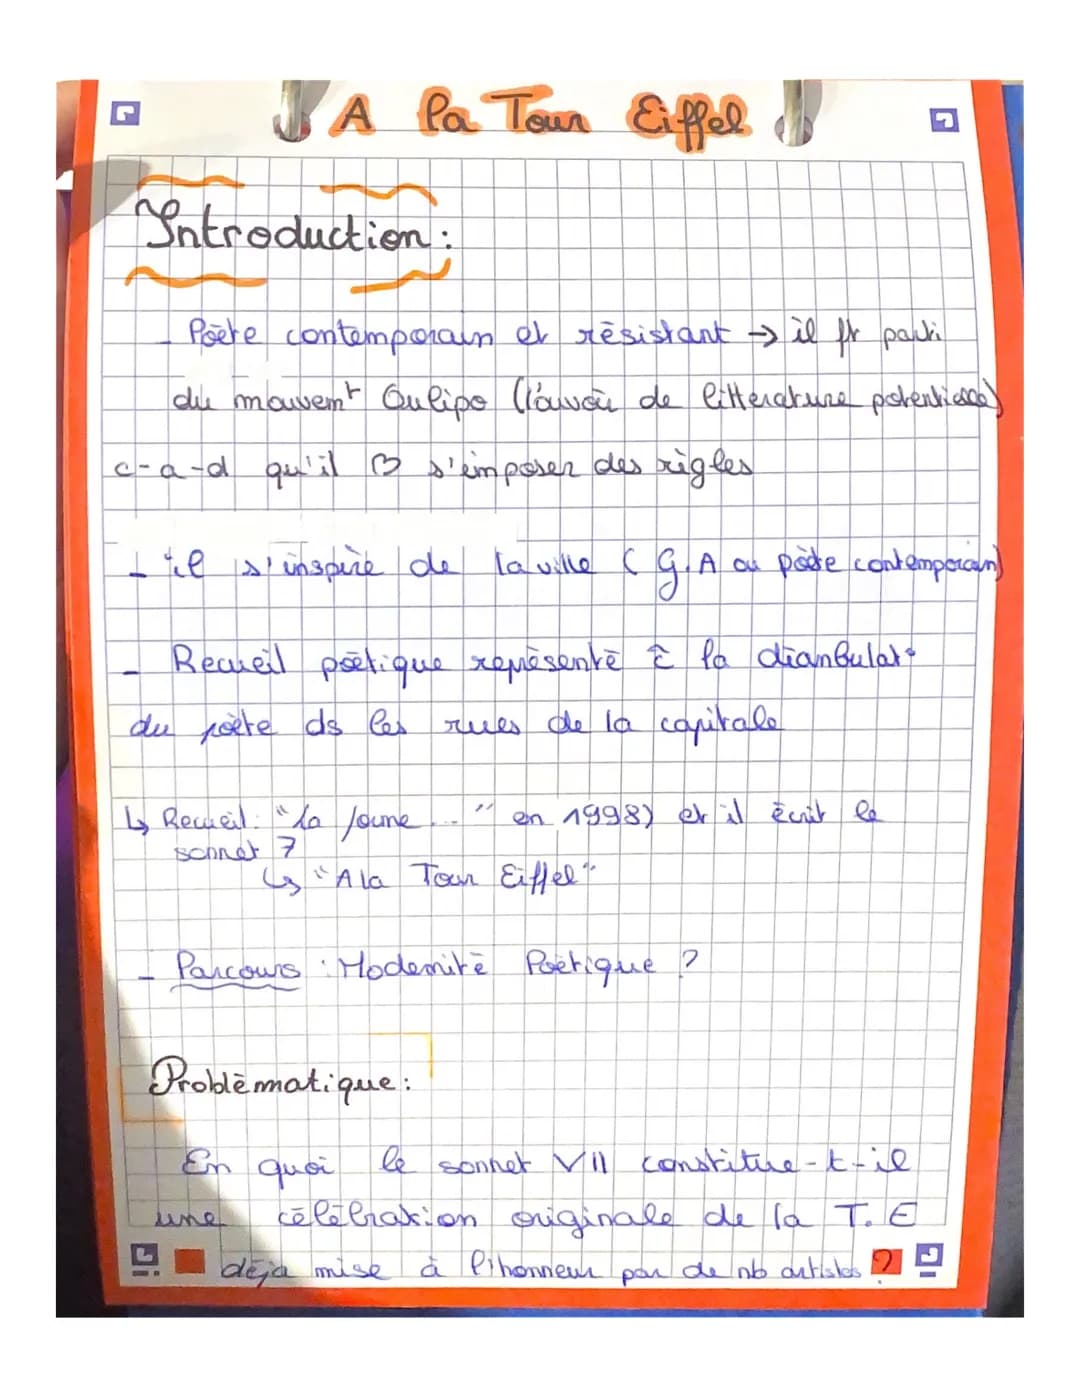 A la Tour Eiffel
Introduction :
- Poëte contemporain et résistant → il ft parti
du mouvemt Oulipo (l'ouvoir de litterature potentielle)
c-a-d qu'il s'imposer des règles
- il s'inspire de la ville ( G.A ou poète contemporain)
- Recueil poëtique représenté à la dianbulat°
du poëte ds les rues de la capitale
↳ Recueil : "La forme ... " en 1998) et il écrit le
sonnet 7
↳ "A la Tour Eiffel"
- Parcours : Modernité Poëtique ?
Problématique :
En quoi le sonnet VII constitue-t-il
une célébration originale de la T. E
déja mise à l'honneur par de nb artistes ?